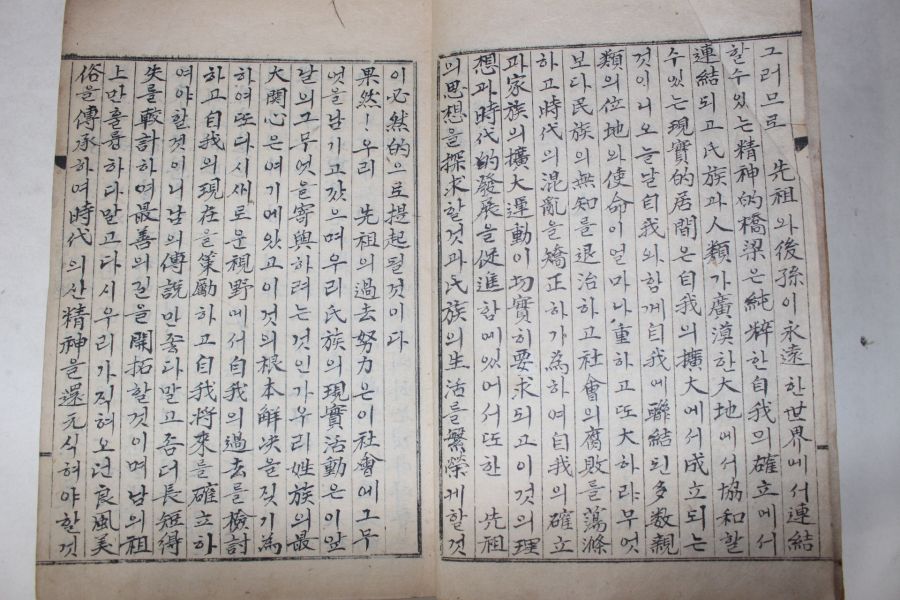 그러므로 先祖와 後孫이 永遠한 世界에서 連結
할수있는 精神的 橋梁은 純粹한 自我의 確立에서
連結되고 氏族과 人類가 廣漠한 大地에서 協和할
수있는 現實的 居間은 自我의 擴大에서 成立되는
것이니 오늘날 自我와 함게 自我에 聯結된 多數親
類의 位地와 使命이 얼마나 重하고 또 大하랴 무엇
보다 民族의 無知를 退治하고 社會의 腐敗를 蕩滌
하고 時代의 混亂을 矯正하가 為하여 自我의 確立
과 家族의 擴大運動이 切實히 要求되고 이것의 理
想과 時代的 發展을 促進함에 있어서 또한 先祖
의 思想을 探求할것과 氏族의 生活를 繁榮게할것
이 必然的으로 提起될것이다
果然! 우리 先祖의 過去努力은 이社會에 그무
엇을 남기고 갔으며 우리氏族의 現實活動은 이앞
날의 그무엇을 寄與하려는것인가 우리 姓族의 最
大関心은 여기에 있고 이것의 根本解决을 짓기 為
하여 또다시 새로운 視野에서 自我의 過去를 檢討
하고 自我의 現在을 策勵하고 自我將來를 確立하
여야할것이니 남의 傳說만 좋다말고 좀더 長短得
失를 較計하며 最善의 길을 開拓할것이며 남의 祖
上만 훌륭하다말고 다시 우리가 직혀오던 良風美
俗을 傳承하여 時代의 산 精神을 還元식혀야한것